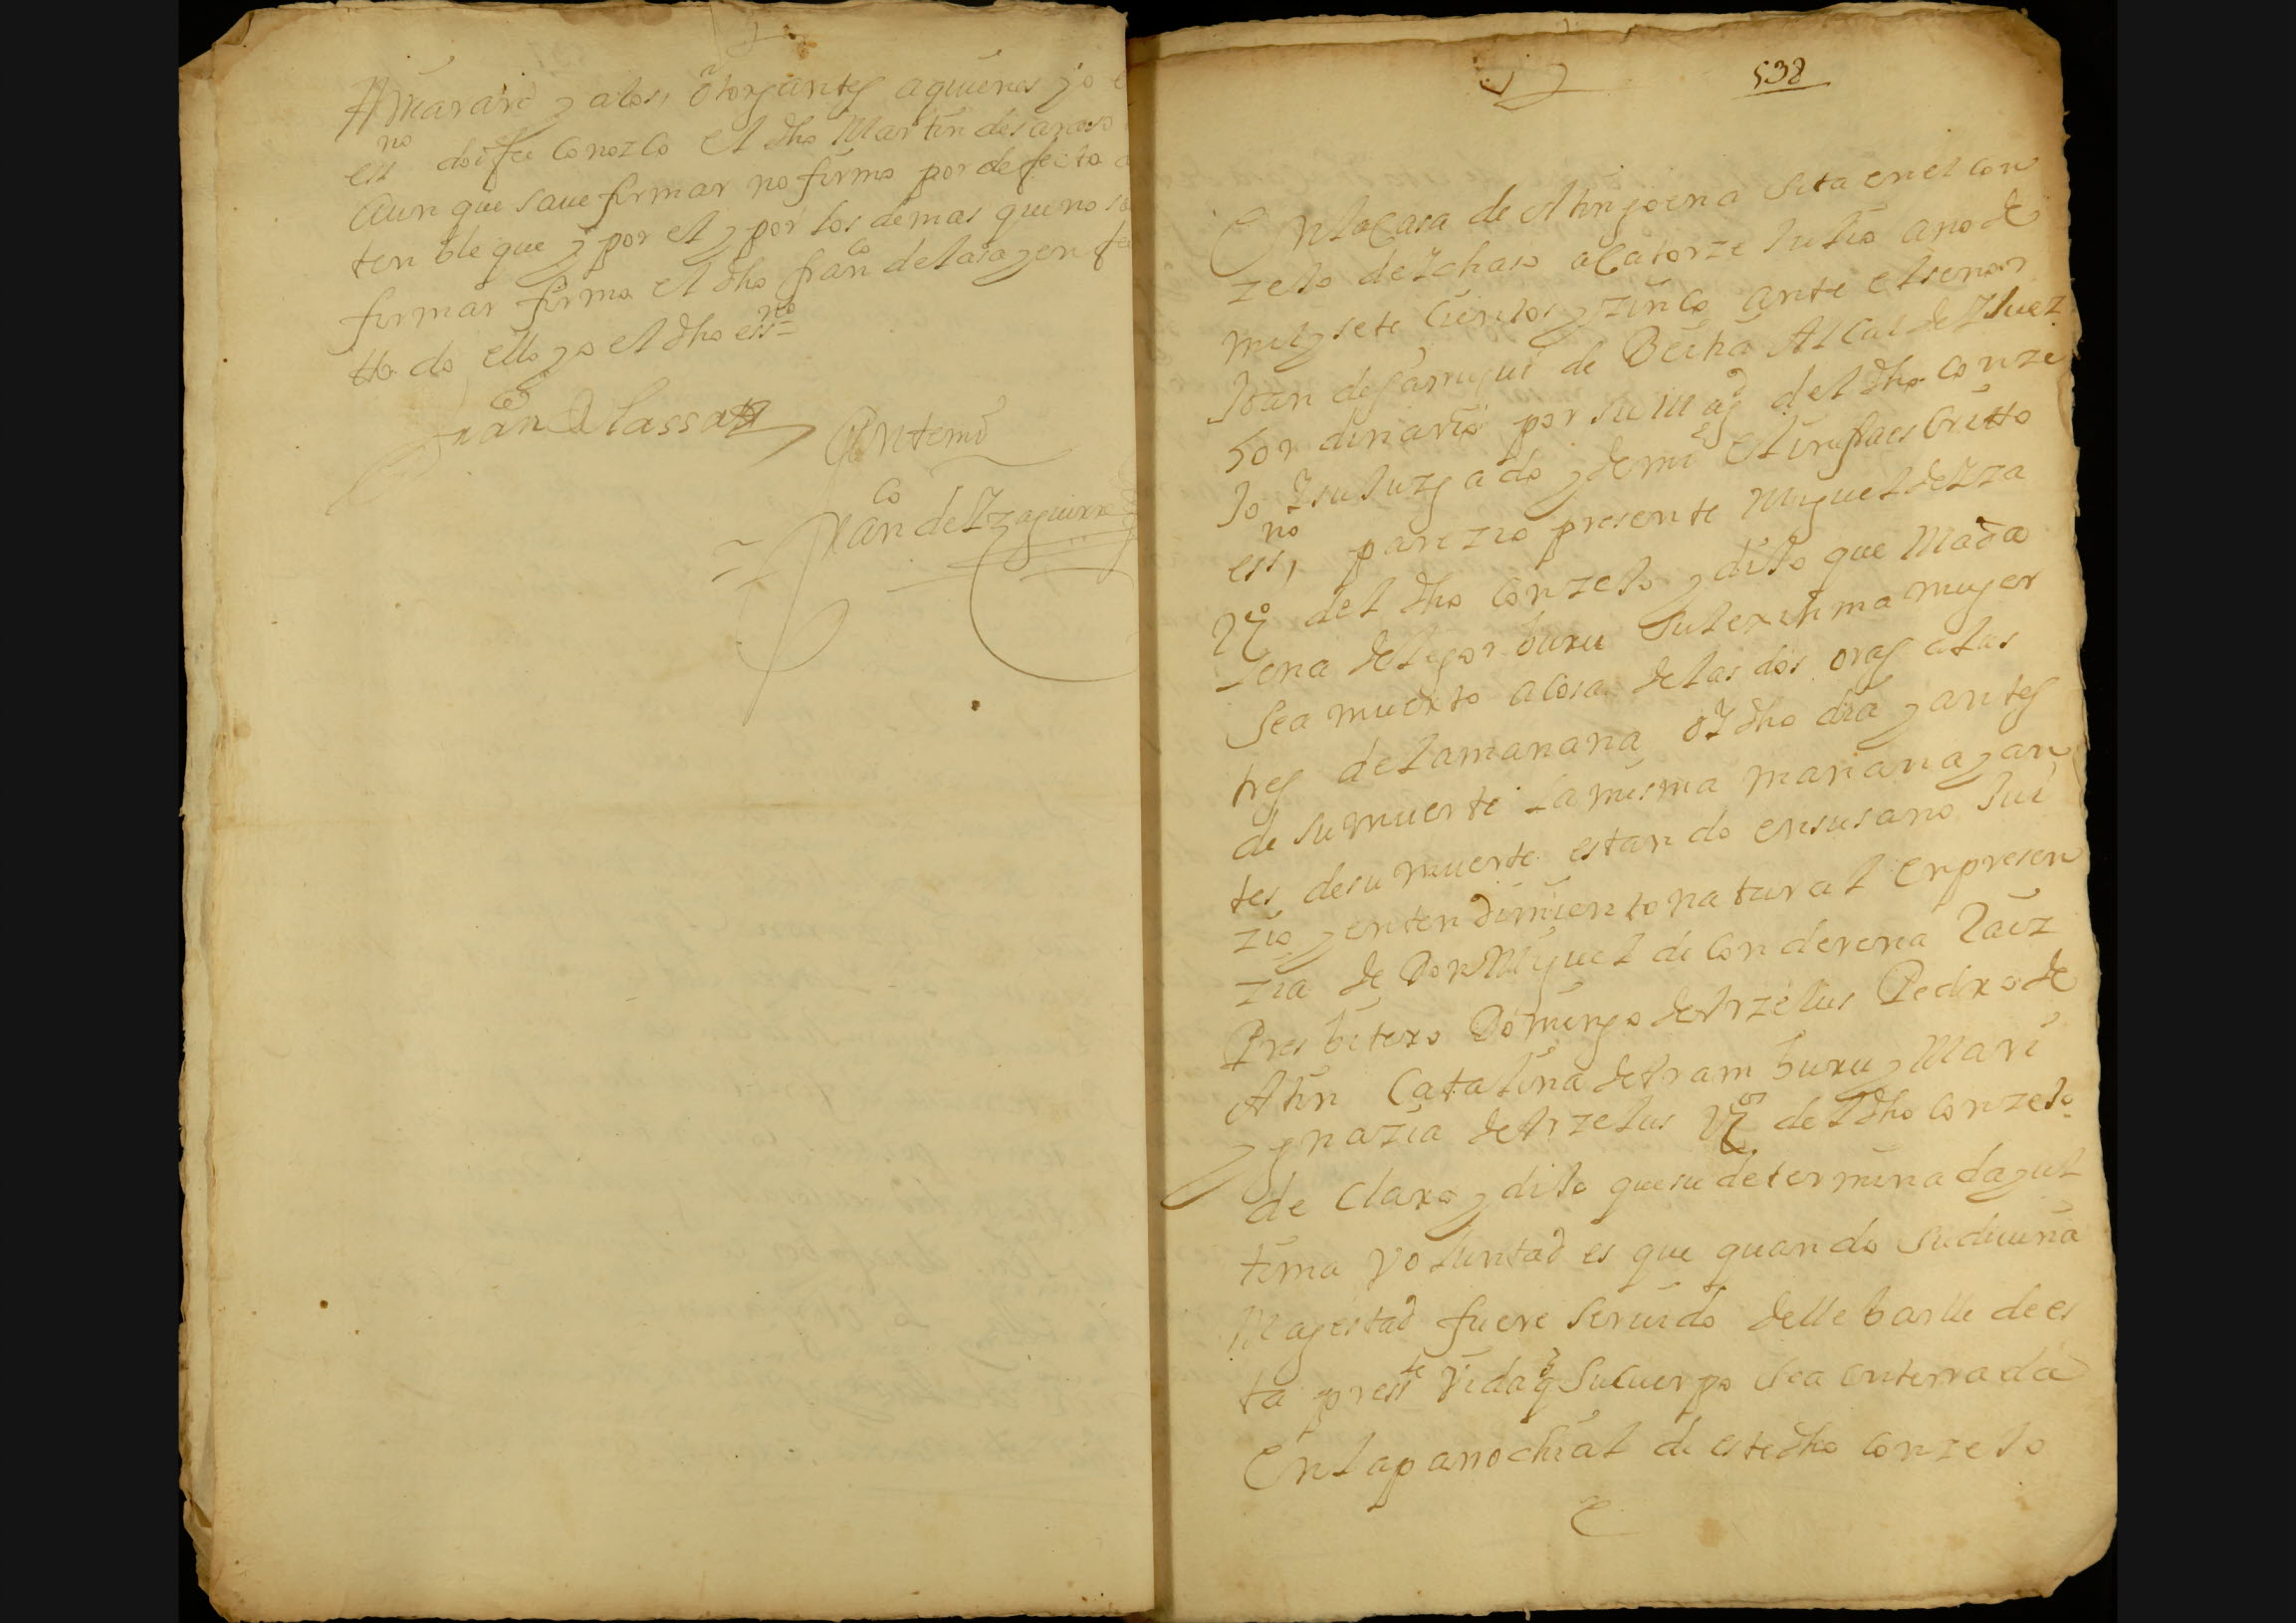 Amarano y alos, otorgantes aquienes yo e
essno doi fee Conozco el dho Martin de saraso
Aun que saue firmar no firmo por defecto
ten ble que y por el y por los demas que no sa
firmar firmo el dho franco de lasa y en fee
tto do ello yo el dho essno=
franco D lassa
Antemi
franco de Yzaguirre
538
En la Casa de Atin goena sita en el Con
zejo de Ychaso a Catorze Julio ano de
mil y sete Cientos y zinco ante el senor
Joan de Garmui de Alcalde Y Juez
hor dinario por su Magd del dho Conze
Jo Y su Juzgado y de mi el infraes Critto
essno, parezio presente Miguel de Yza
vzo del dho Conzejo y dijo que Mada
lena de Legor buru su lexitima mujer
sea muerto a cosa de las dos oras a las
tres de la manana oy dho dia y antes
de su muerte la misma manana y an
tes de su muerte estan do en su sano Jui
zio y enten dimiento natural en presen
zia de Don Miguel de Con derena
Presbitero Domingo de Arzelus Pedro de
Atin Catalina de Aram buru y Mari
ygnazia de Arzelus vzos del dho Conzejo
de Claro y dijo que su determinada y ul
tima Voluntad es que quando su diuina
Magestad fuere seruido de lle barlle de es
ta presste Vida q su Cuerpo sea enterrada
En la parrochial de este dho Conzejo